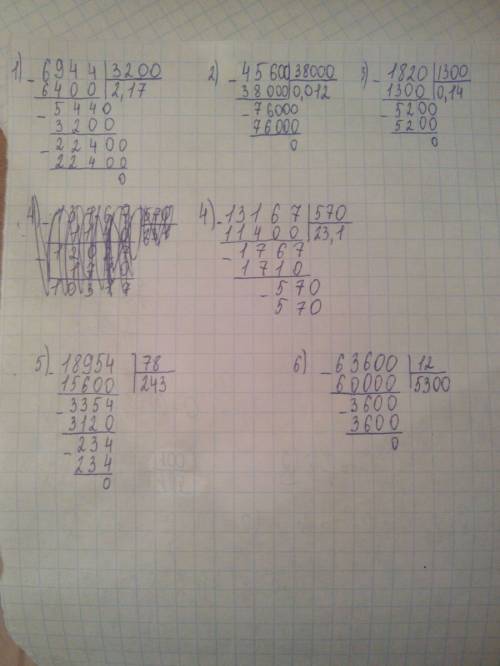 1) - 6944 | 3200
6400 | 2,17
- 5440
3200
- 22400
22400
0
2) - 45600 | 38000
38000 | 0,012
- 76000
76000
0
3) - 1820 | 1300
1300 | 0,14
- 5200
5200
0
4)
4) - 13167 | 570
11400 | 23,1
- 1767
1710
- 570
570
5) - 18954 | 78
15600 | 243
- 3354
3120
- 234
234
0
6) - 63600 | 12
60000 | 5300
- 3600
3600
0